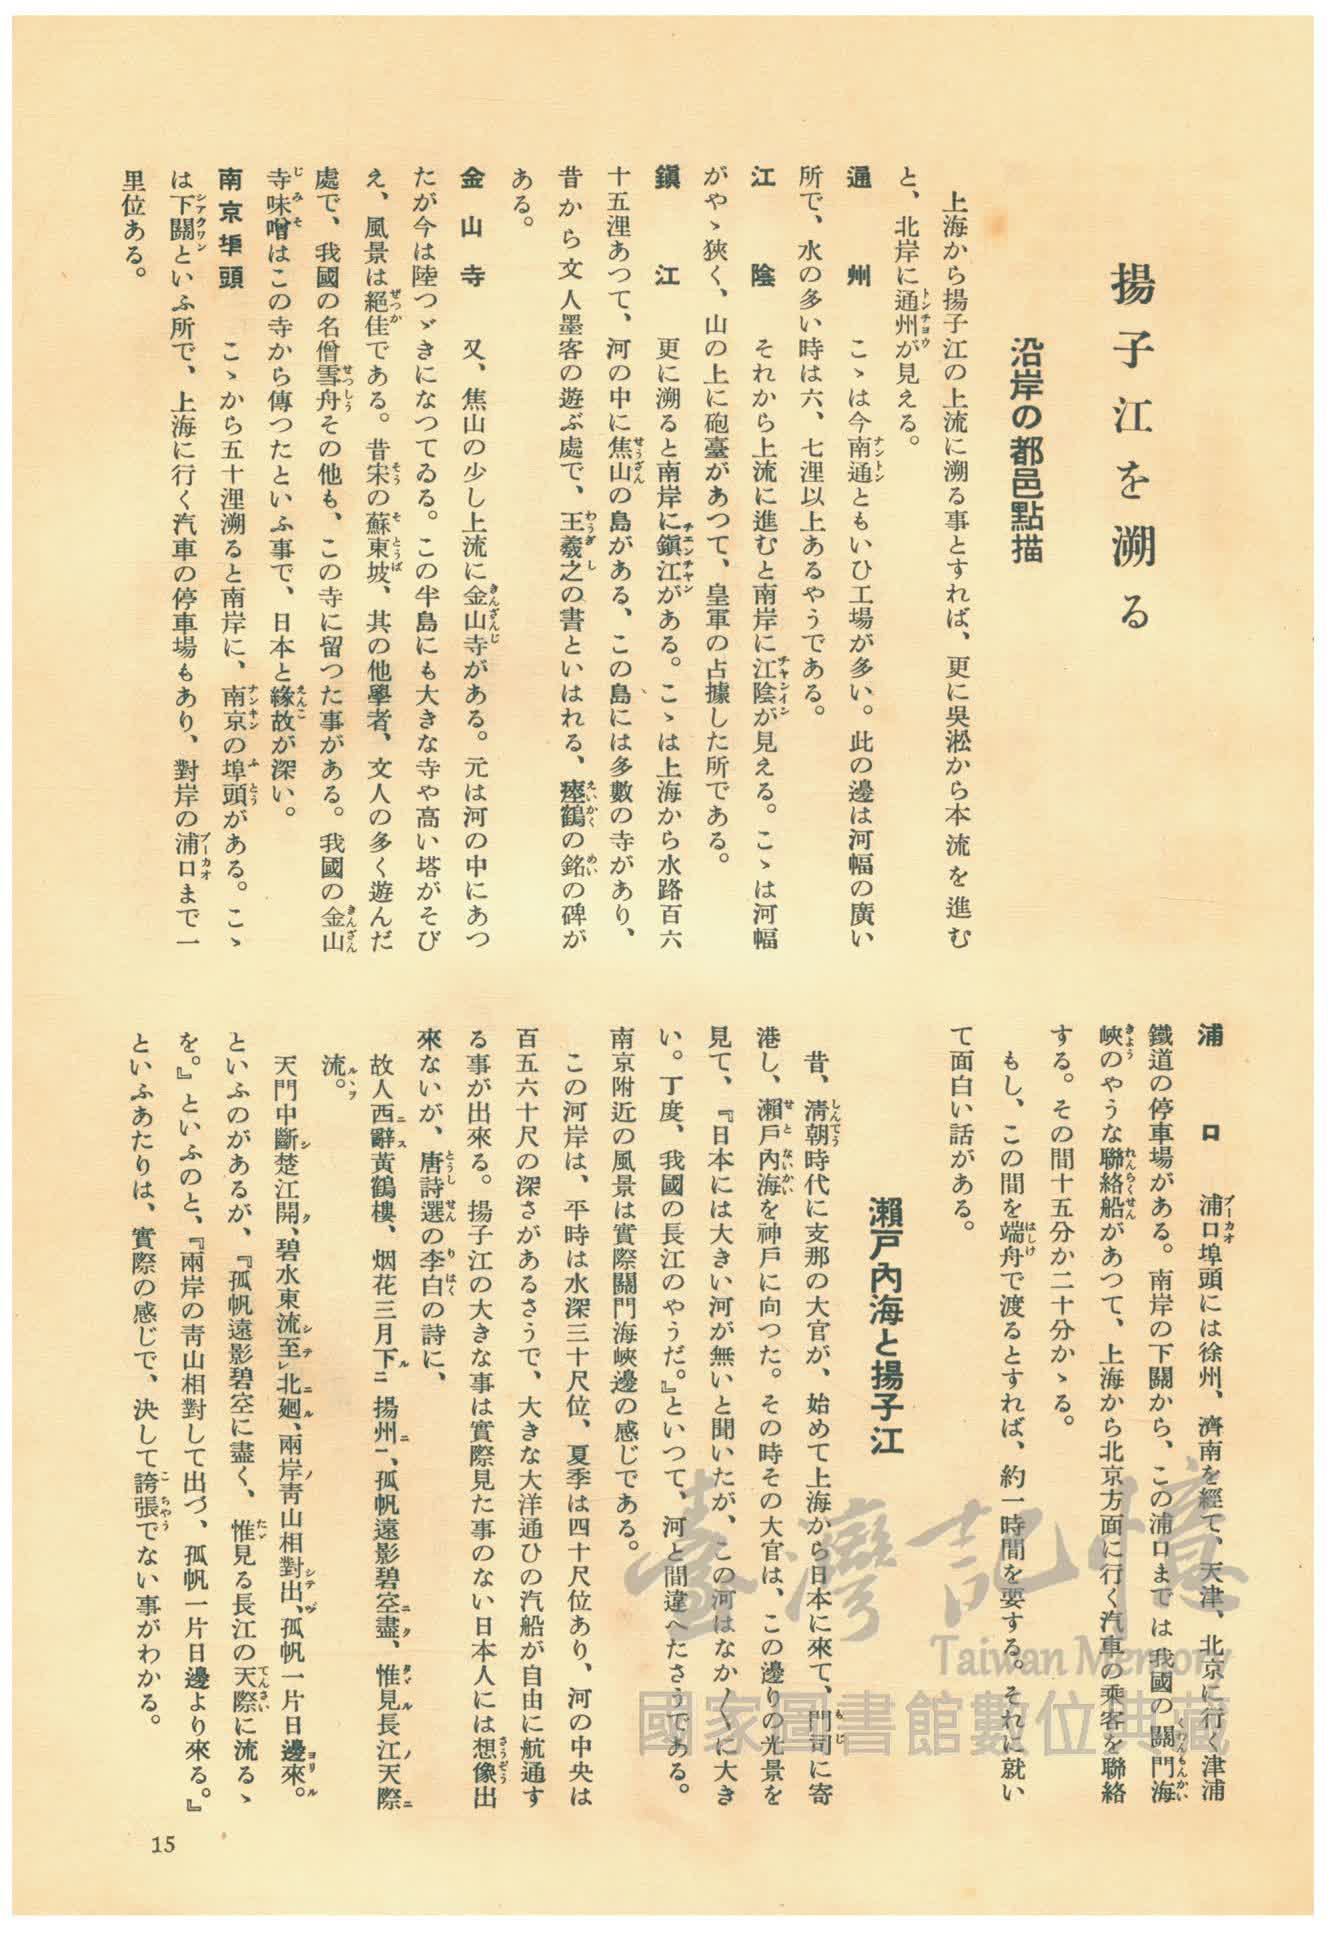 揚子江を溯る
沿岸の都邑點描
上海から揚子江の上流に溯る事とすれば、更に吳淞から本流を進む
と、北岸に通州が見える。
通州　こゝは今南通ともいひ工場が多い。此の邊は河幅の廣い
所で、水の多い時は六、七浬以上あるやうである。
江陰　それから上流に進むと南岸に江陰が見える。こゝは河幅
がやゝ狹く、山の上に砲臺があつて、皇軍の占據した所である。
鎭江　更に溯ると南岸に鎭江がある。こゝは上海から水路百六
十五浬あつて、河の中に焦山の島がある、この島には多數の寺があり、
昔から文人墨客の遊ぶ處で、王羲之の書といはれる、瘞鶴の銘の碑が
ある。
金山寺　又、焦山の少し上流に金山寺がある。元は河の中にあつ
たが今は陸つゞきになつてゐる。この半島にも大きな寺や高い塔がそび
え、風景は絕佳である。昔宋の蘇東坡、其の他學者、文人の多く遊んだ
處で、我國の名僧雪舟その他も、この寺に留つた事がある。我國の金山
寺味噌はこの寺から傳つたといふ事で、日本と緣故が深い。
南京埠頭　こゝから五十浬溯ると南岸に、南京の埠頭がある。こゝ
は下關といふ所で、上海に行く汽車の停車場もあり、對岸の浦口まで一
里位ある。
浦口　浦口埠頭には徐州、濟南を經て、天津、北京に行く津浦
鐵道の停車場がある。南岸の下關から、この浦口までは我國の關門海
峽のやうな聯絡船があつて、上海から北京方面に行く汽車の乘客を聯絡
する。その間十五分か二十分かゝる。
もし、この間を端舟で渡るとすれば、約一時間を要する。それに就い
て面白い話がある。
瀨戶內海と揚子江
昔、淸朝時代に支那の大官が、始めて上海から日本に來て、門司に寄
港し、瀨戶內海を神戶に向つた。その時その大官は、この邊りの光景を
見て、『日本には大きい河が無いと聞いたが、この河はなか〳〵に大き
い。丁度、我國の長江のやうだ。』といつて、河と間違へたさうである。
南京附近の風景は實際關門海峽邊の感じである。
この河岸は、平時は水深三十尺位、夏季は四十尺位あり、河の中央は
百五六十尺の深さがあるさうで、大きな大洋通ひの汽船が自由に航通す
る事が出來る。揚子江の大きな事は實際見た事のない日本人には想像出
來ないが、唐詩選の李白の詩に、
故人西辭黃鶴樓、烟花三月下二揚州一、孤帆遠影碧空盡、惟見長江天際
流。
天門中斷楚江開、碧水東流至レ北廻、兩岸靑山相對出、孤帆一片日邊來。
といふのがあるが、『孤帆遠影碧空に盡く、惟見る長江の天際に流るゝ
を。』といふのと、『兩岸の靑山相對して出づ、孤帆一片日邊より來る。』
といふあたりは、實際の感じで、決して誇張でない事がわかる。
15
臺灣記憶
Taiwan Memory
國家圖書館數位典藏